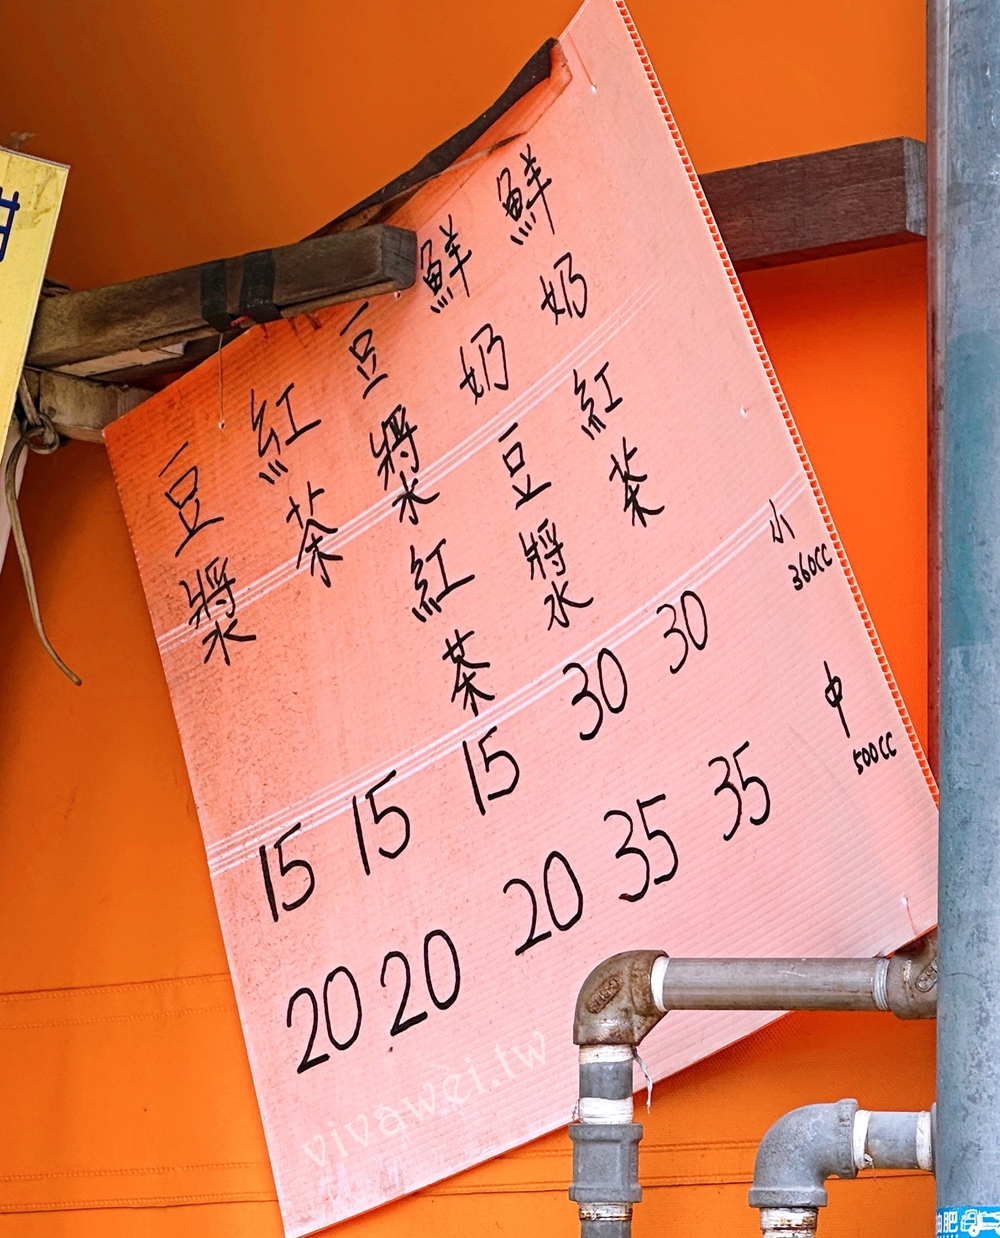 小 360cc
中 500cc
鮮奶紅茶 30 35
鮮奶豆漿 30 35
豆漿紅茶 15 20
紅茶 15 20
豆漿 15 20
vivawei.tw